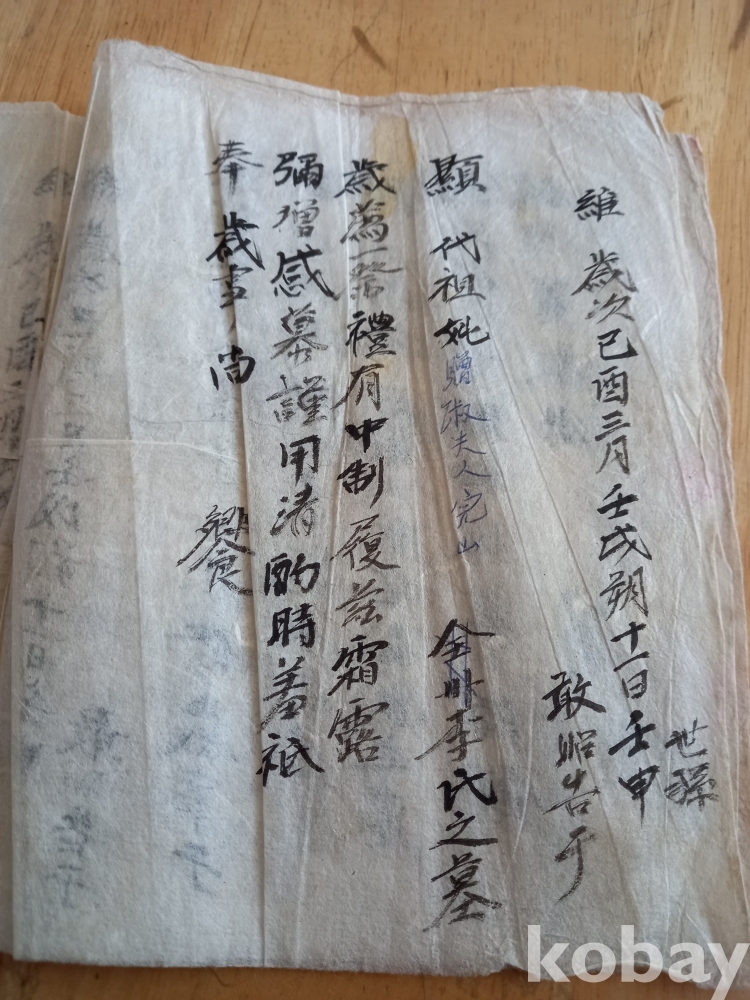 維 歲次己酉三月壬戌朔十一日壬申
世孫
敢昭告于
顯 代祖妣贈淑夫人完山 全州李氏之墓
歲薦一祭禮有中制履玆霜露
彌增感慕謹用淸酌時羞祗
奉 歲事 尚
饗
kobay